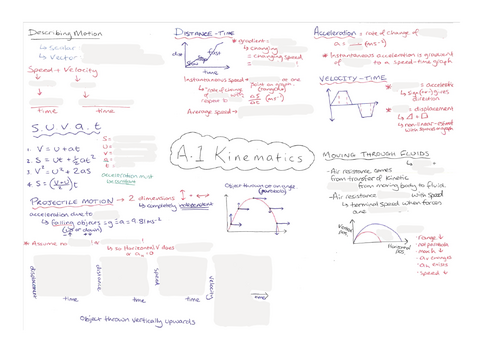 Describing Motion
↳ Scalar:
↳ Vector:
Speed + Velocity
time
time
S.U.V.A.T
1. V = U + at
2. S = Ut + ½at²
3. V² = U² + 2as
4. S = (V+U)t
2
S =
U =
V =
a =
t =
acceleration must
be constant
PROJECTILE MOTION → 2 dimensions
↳ completely independent
acceleration due to
↳ falling objects = g = a = 9.81ms⁻²
(up or down)
* Assume no
! so Horizontal V does
or aₕ = 0
displacement
time
Distance
time
Speed
time
velocity
time
Object thrown vertically upwards
DISTANCE-TIME
dist
time
* Gradient =
↳ changing
= changing speed
Instantaneous speed →
at one
point on graph
↳ rate of change
of
with
respect to
Δs
(ms⁻¹)
Average speed →
A.1 Kinematics
Object thrown at an angle
(parabola)
Acceleration = rate of change of
a = (ms⁻²)
* Instantaneous acceleration is gradient
of to a speed-time graph
VELOCITY-TIME
*
= acceleration
*
= displacement
↳ non linear - est
MOVING THROUGH FLUIDS
- Air resistance comes
from transfer of kinetic
from moving body to fluid.
- Air resistance with speed
↳ terminal speed when forces
are
Vertical
pos.
Horizontal
pos
- range ↓
- not parabola
- max h ↓
- speed ↓